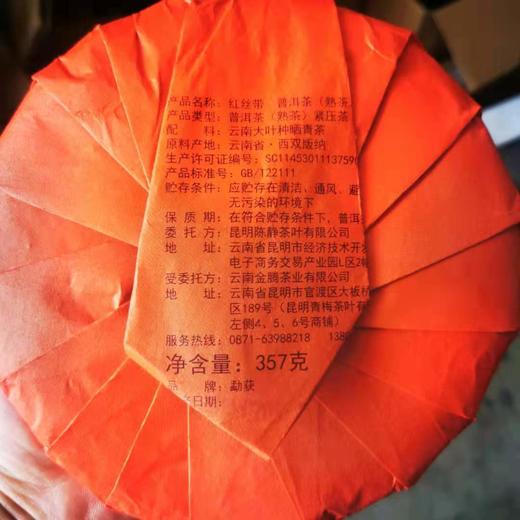 产品名称：红丝带　普洱茶（熟茶
产品类型：普洱茶（熟茶）紧压茶
配　　料：云南大叶种晒青茶
原料产地：云南省·西双版纳
生产许可证编号：SC11453011137590
产品标准号：GB/T22111
贮存条件：应贮存在清洁、通风、避
无污染的环境下
保 质 期：在符合贮存条件下，普洱
委 托 方：昆明陈静茶叶有限公司
地　　址：云南省昆明市经济技术开发
电子商务交易产业园L区2
受委托方：云南金腾茶业有限公司
地　　址：云南省昆明市官渡区大板桥
区189号（昆明青梅茶叶有
左侧4、5、6号商铺）
服务热线：0871-63988218　138
净含量：357克
品　　牌：勐获
日期：